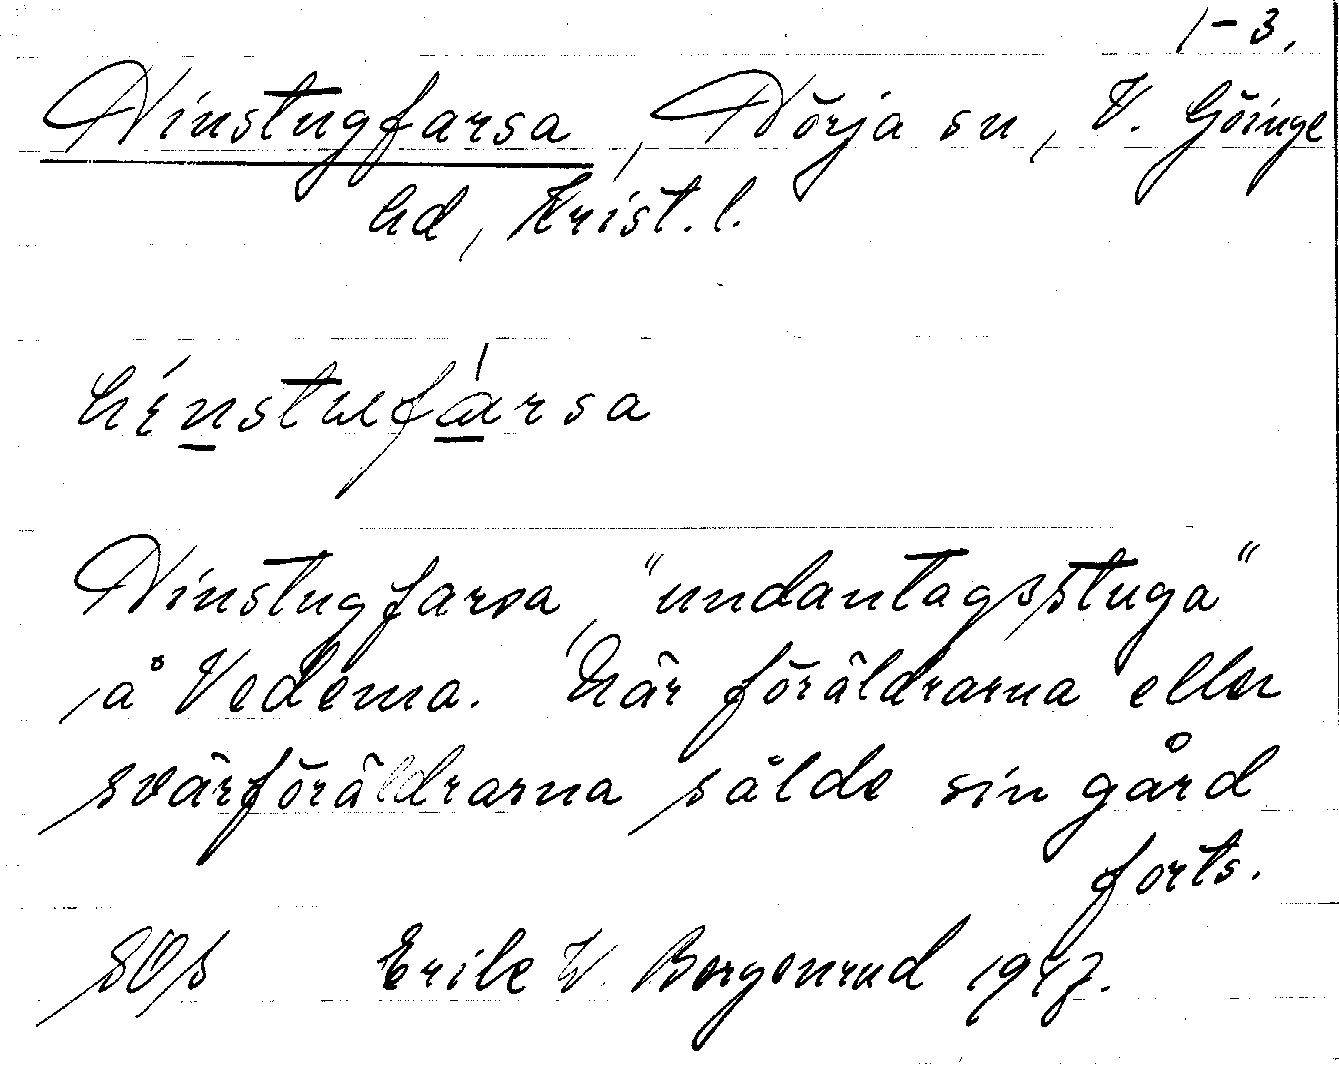 1-3.
Hinstugfarsa, Hörja sn, V. Göinge
hd, Krist. l.
hínstuefársa
Hinstugfarsa, "undantagsstuga"
å Vedema. När föräldrarna eller
svärföräldrarna sålde sin gård
forts.
SOS Erik W. Borgenrud 1947.